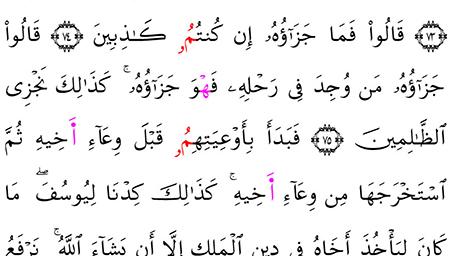 ﴿٧٣﴾ قَالُوا۟ فَمَا جَزَٰٓؤُهُۥٓ إِن كُنتُمُۥ كَٰذِبِينَ ﴿٧٤﴾ قَالُوا۟
جَزَٰٓؤُهُۥ مَن وُجِدَ فِى رَحْلِهِۦ فَهْوَ جَزَٰٓؤُهُۥ ۚ كَذَٰلِكَ نَجْزِى
ٱلظَّٰلِمِينَ ﴿٧٥﴾ فَبَدَأَ بِأَوْعِيَتِهِمُۥ قَبْلَ وِعَآءِ أَخِيهِ ثُمَّ
ٱسْتَخْرَجَهَا مِن وِعَآءِ أَخِيهِ ۚ كَذَٰلِكَ كِدْنَا لِيُوسُفَ ۖ مَا
كَانَ لِيَأْخُذَ أَخَاهُ فِى دِينِ ٱلْمَلِكِ إِلَّآ أَن يَشَآءَ ٱللَّهُ ۚ نَرْفَعُ